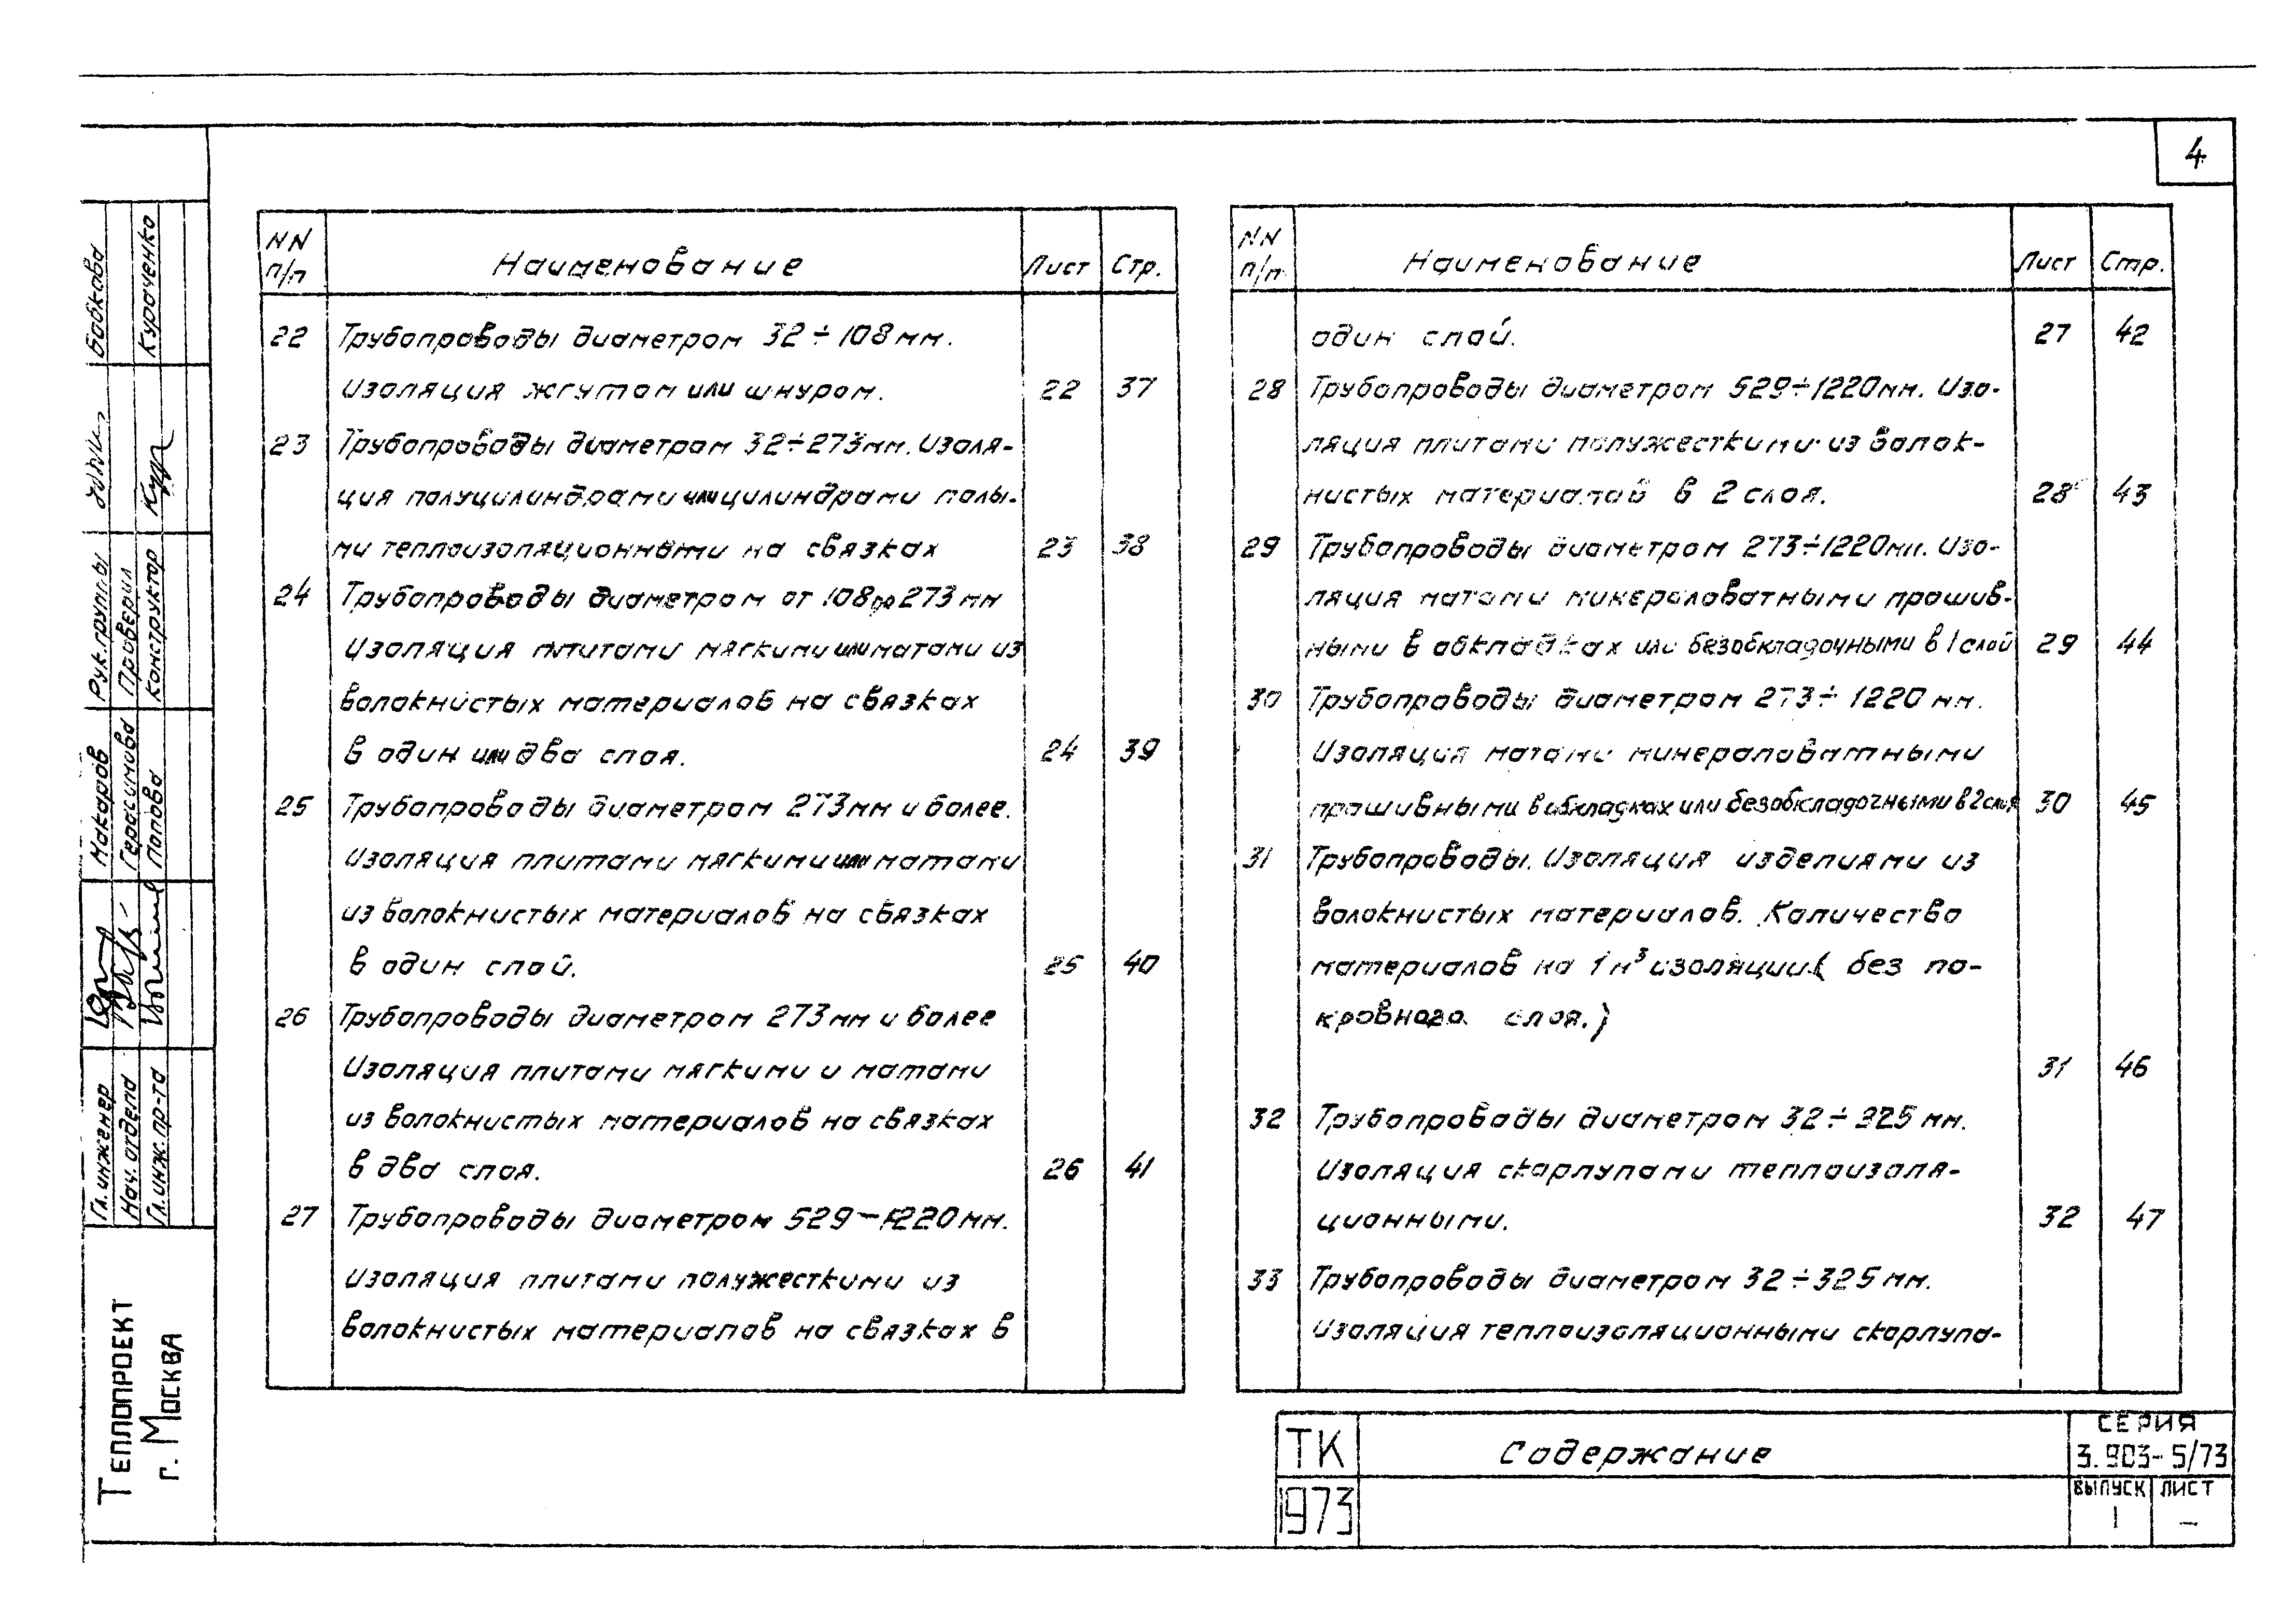 4
NN п/п Наименование Лист Стр.
22 Трубопроводы диаметром 32÷108 мм.
Изоляция жгутом или шнуром. 22 37
23 Трубопроводы диаметром 32÷273мм. Изоля-
ция полуцилиндрами или цилиндрами полы-
ми теплоизоляционными на связках 23 38
24 Трубопроводы диаметром от 108 до 273 мм
Изоляция плитами мягкими или матами из
волокнистых материалов на связках
в один или два слоя. 24 39
25 Трубопроводы диаметром 273мм и более.
Изоляция плитами мягкими или матами
из волокнистых материалов на связках
в один слой. 25 40
26 Трубопроводы диаметром 273мм и более
Изоляция плитами мягкими и матами
из волокнистых материалов на связках
в два слоя. 26 41
27 Трубопроводы диаметром 529–1220 мм.
Изоляция плитами полужесткими из
волокнистых материалов на связках в
NN п/п Наименование Лист Стр.
один слой. 27 42
28 Трубопроводы диаметром 529÷1220мм. Изо-
ляция плитами полужесткими из волок-
нистых материалов в 2 слоя. 28 43
29 Трубопроводы диаметром 273÷1220мм. Изо-
ляция матами минераловатными прошив-
ными в обкладках или безобкладочными в 1 слой 29 44
30 Трубопроводы диаметром 273÷1220 мм.
Изоляция матами минераловатными
прошивными в обкладках или безобкладочными в 2 слоя 30 45
31 Трубопроводы. Изоляция изделиями из
волокнистых материалов. Количество
материалов на 1 м³ изоляции ( без по-
кровного слоя.)
31 46
32 Трубопроводы диаметром 32÷325 мм.
Изоляция скорлупами теплоизоля-
ционными. 32 47
33 Трубопроводы диаметром 32÷325 мм.
Изоляция теплоизоляционными скорлупа-
ТК
1973
Содержание
СЕРИЯ
3.903-5/73
ВЫПУСК ЛИСТ
1 –
Гл. инженер Макаров Рук. группы Бобкова
Нач. отдела Герасимова Проверил
Гл. инж. пр-та Попова Конструктор Кураченко
ТЕПЛОПРОЕКТ
г. МОСКВА